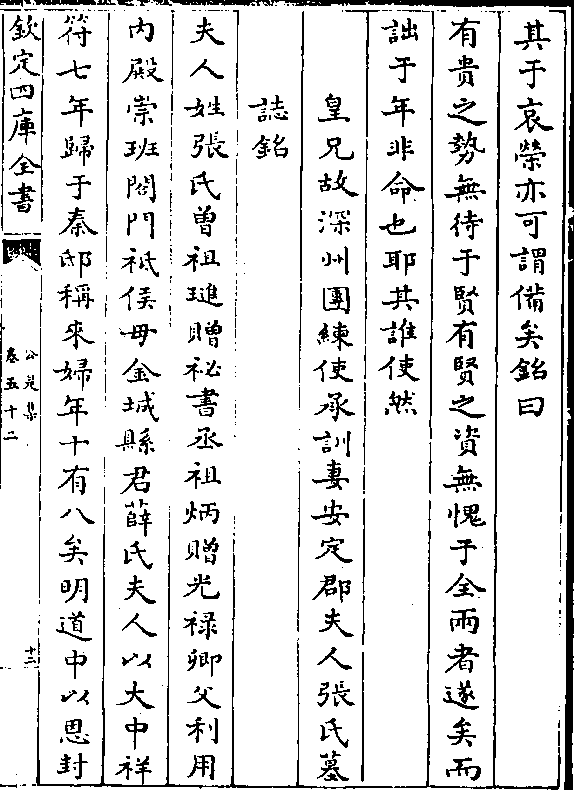 其于哀榮亦可謂備矣銘曰
有貴之勢無待于賢有賢之資無愧于全兩者遂矣而
詘于年非命也耶其誰使然
皇兄故深州團練使承訓妻安定郡夫人張氏墓
誌銘
夫人姓張氏曽祖璉贈祕書丞祖炳贈光禄卿父利用
内殿崇班閤門祗侯母金城縣君薛氏夫人以大中祥
符七年歸于秦邸稱來婦年十有八矣明道中以恩封
欽定四庫全書
公是集
卷五十二
十三